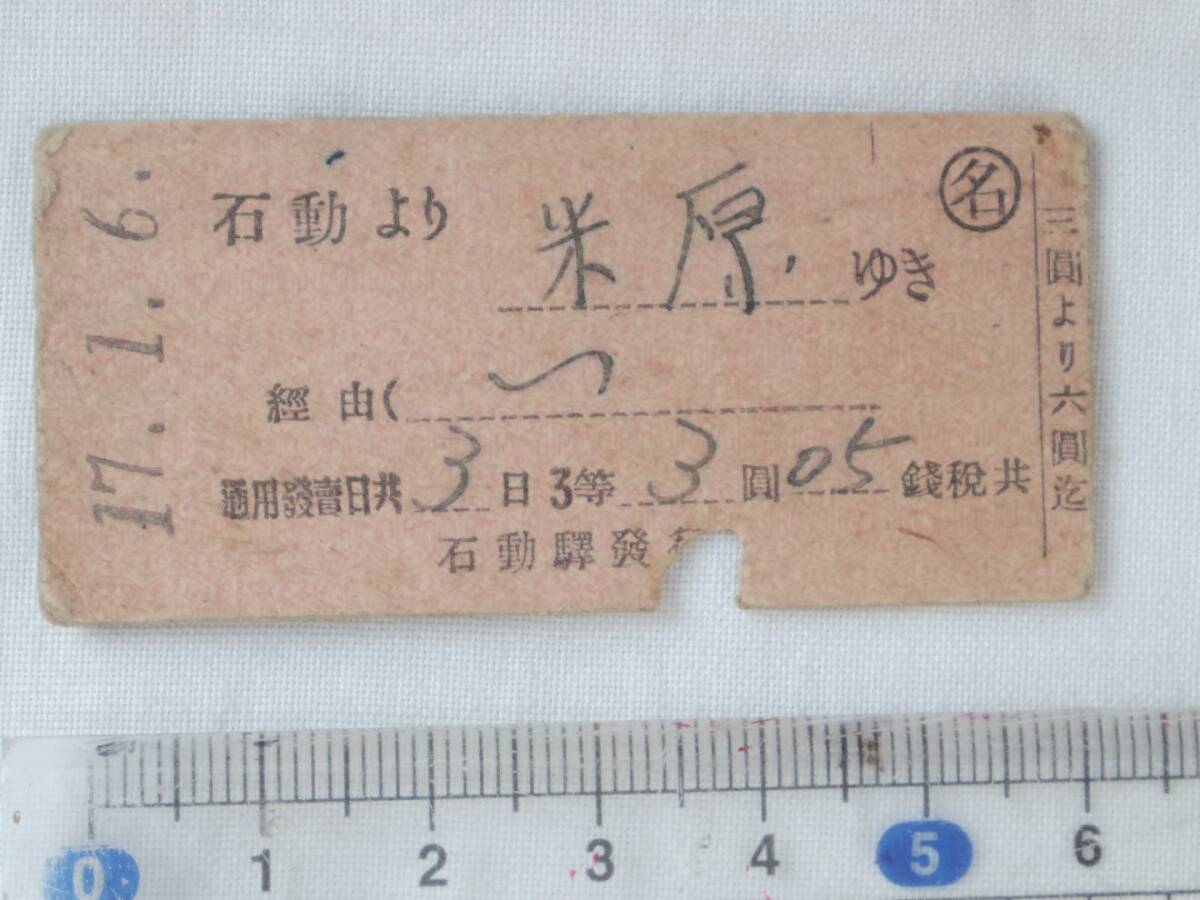 17.1.6.
石動より 米原 ゆき
㊔
經由(
通用發賣日共3日3等3圓05錢税共
石動驛發行
三圓より六圓迄
0 1 2 3 4 5 6